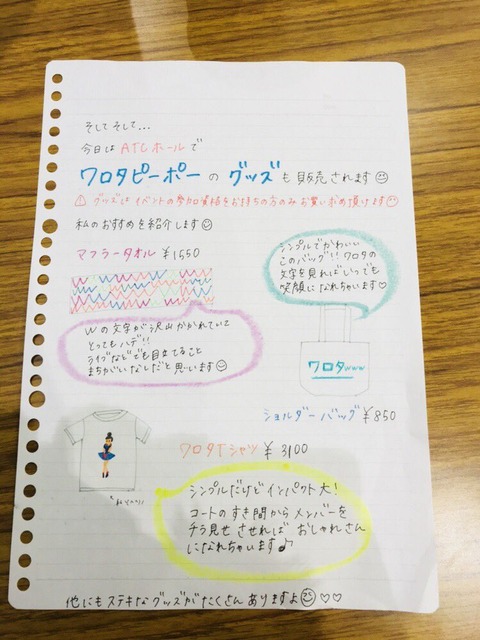 そしてそして...
今日は ATCホール で
ワロタピーポー の グッズ も 販売されます
⚠ グッズはイベントの参加資格をお持ちの方のみ お買い求め頂けます
私のおすすめを紹介します
マフラータオル ¥1550
シンプルでかわいい
このバッグ!! ワロタの
文字を見ればいつでも
笑顔になれちゃいます♡
Wの文字が沢山かかれていて
とってもハデ!!
ライブなどでも目立てること
まちがいなしだと思います
ワロタwww
ショルダーバッグ ¥850
ワロタTシャツ ¥3100
シンプルだけどインパクト大!
コートのすき間からメンバーを
チラ見せさせれば おしゃれさん
になれちゃいます♪
他にもステキなグッズがたくさんありますよ♡♡